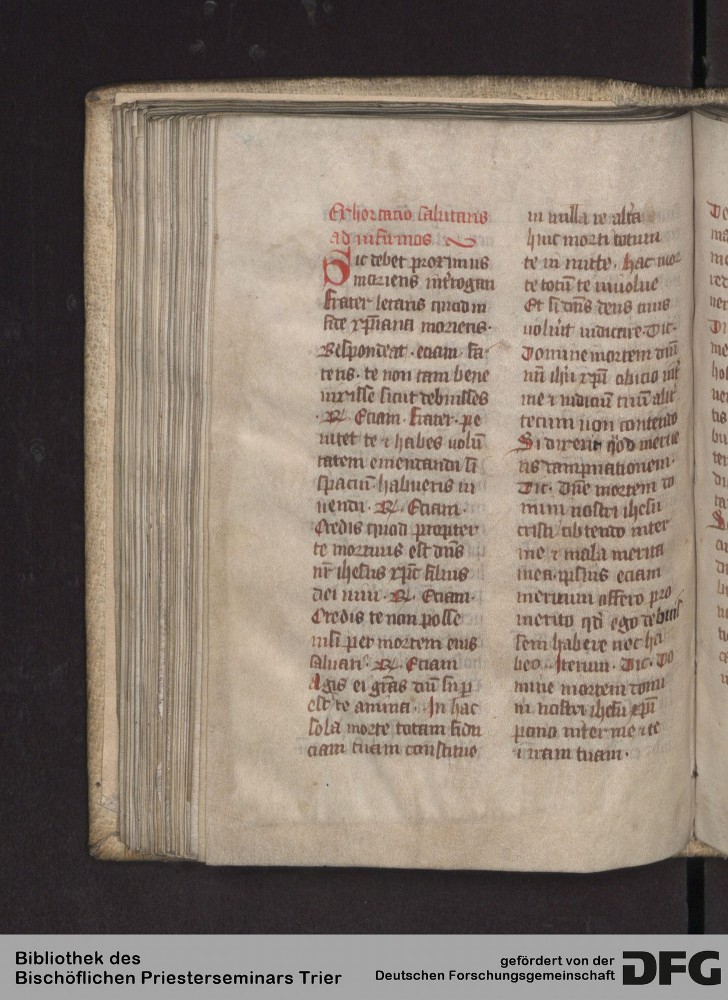 Exhortatio salutaris
ad infirmos
Sic debet proximus
moriens interogari
Frater letaris quod in
fide xp̄iana morieris·
Respondeat · eciam · fa-
teris · te non tam bene
uixisse sicut debuisses
· R̄ · Eciam · frater · pe
nitet te ⁊ habes uolū
tatem emendandi si
spaciū habueris ui
uendi · R̄ · Eciam ·
Credis quod propter
te mortuus est dn̄s
nr̄ ihesus xp̄c filius
dei uiui · R̄ · Eciam·
Credis te non posse
nisi per mortem eius
saluari · R̄ · Eciam
Agis ei gr̄as dū sup̄
est te anima · In hac
sola morte totam fidu
ciam tuam constitue
in nulla re alia
huic morti totum
te in mitte · hac mor
te totū te inuolue
Et si dn̄s deus tuus
uoluit iudicare · Dic·
Domine mortem dn̄i
nr̄i ihū xp̄i obicio int̄
me ⁊ iudiciū tuū alit̄
tecum non contendo
Si dixerit qd̓ merue
ris dampnationem·
Dic · Dn̄e mortem do
mini nostri ihesu
cristi obtendo inter
me ⁊ mala merita
mea · ipsius eciam
meritum offero pro
merito qd̓ ego debuis
sem habere nec ha
beo · Iterum · Dic · Do
mine mortem domi
ni nostri ihesū xp̄i
pono inter me ⁊ te
⁊ iram tuam·
Bibliothek des
Bischöflichen Priesterseminars Trier
gefördert von der
Deutschen Forschungsgemeinschaft
DFG